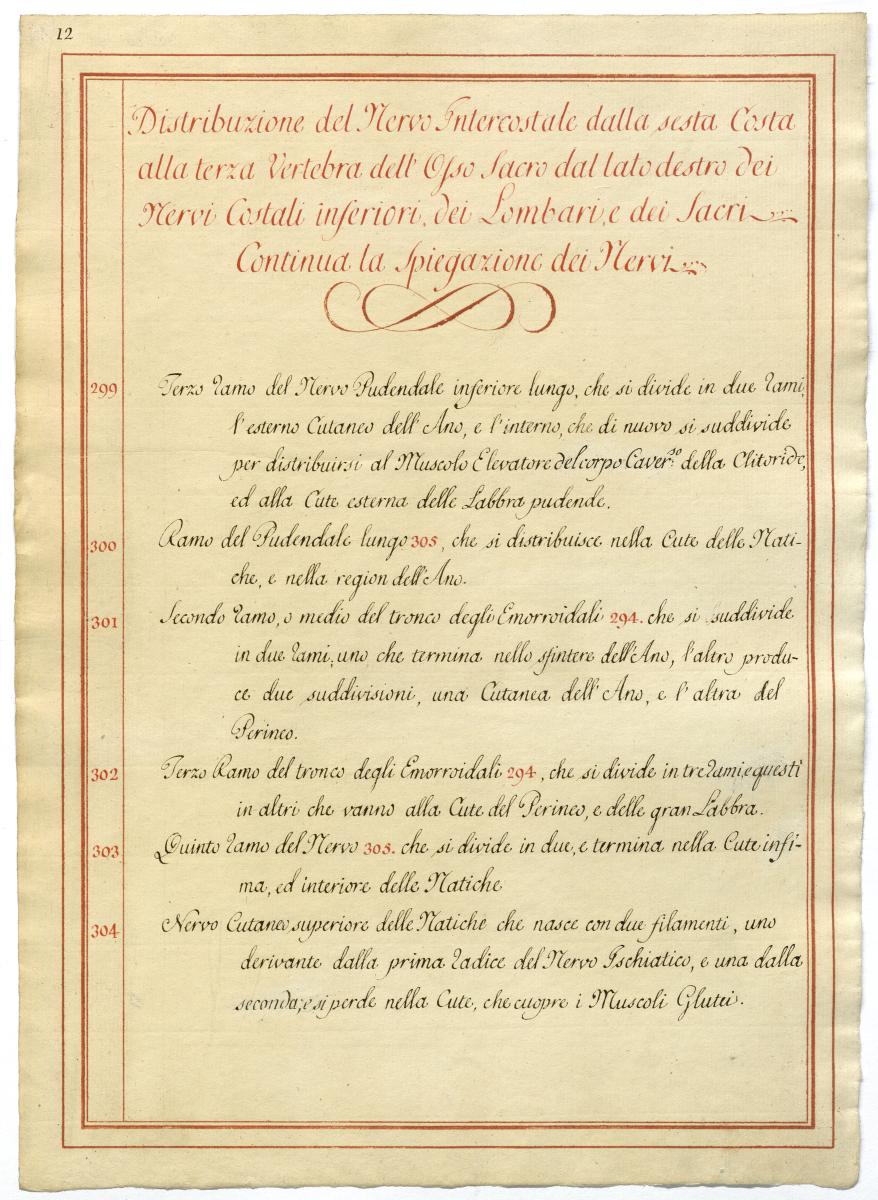 12
Distribuzione del Nervo Intercostale dalla sesta Costa
alla terza Vertebra dell' Osso Sacro dal lato destro dei
Nervi Costali inferiori, dei Lombari, e dei Sacri
Continua la Spiegazione dei Nervi
299 Terzo ramo del Nervo Pudendale inferiore lungo, che si divide in due rami,
l'esterno Cutaneo dell' Ano, e l'interno, che di nuovo si suddivide
per distribuirsi al Muscolo Elevatore del corpo Caver.so della Clitoride,
ed alla Cute esterna delle Labbra pudende.
300 Ramo del Pudendale lungo 305, che si distribuisce nella Cute delle Nati-
che, e nella region dell'Ano.
301 Secondo ramo, o medio del tronco degli Emorroidali 294. che si suddivide
in due rami, uno che termina nello sfintere dell'Ano, l'altro produ-
ce due suddivisioni, una Cutanea dell' Ano, e l' altra del
Perineo.
302 Terzo Ramo del tronco degli Emorroidali 294, che si divide in tre rami, e questi
in altri che vanno alla Cute del Perineo, e delle gran Labbra.
303 Quinto ramo del Nervo 305. che si divide in due, e termina nella Cute infi-
ma, ed interiore delle Natiche
304 Nervo Cutaneo superiore delle Natiche che nasce con due filamenti, uno
derivante dalla prima radice del Nervo Ischiatico, e una dalla
seconda, e si perde nella Cute, che cuopre i Muscoli Glutei.